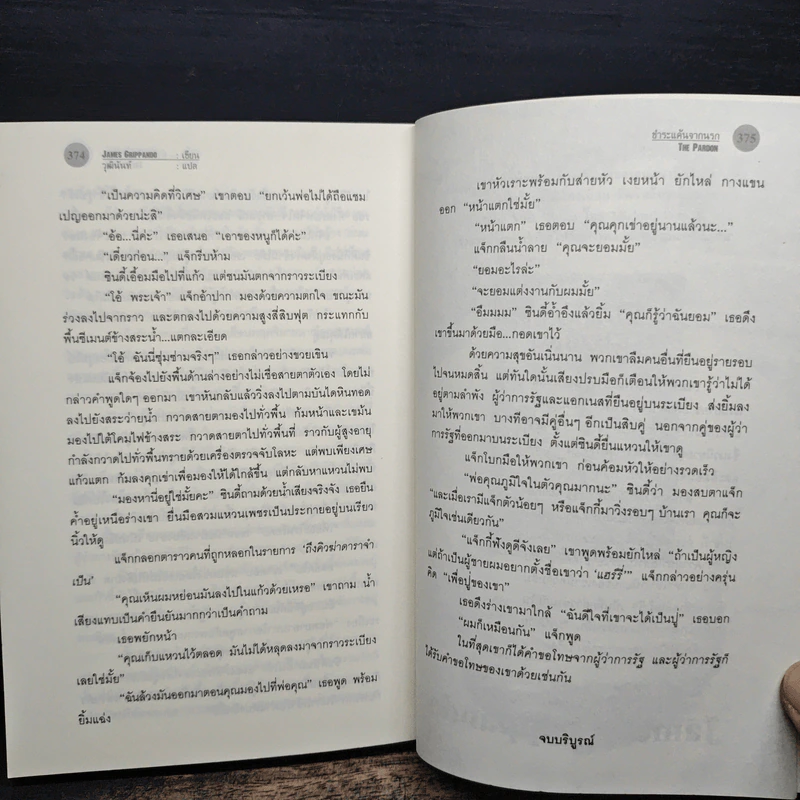 374 JAMES GRIPPANDO : เขียน
วุฒินันท์ : แปล
"เป็นความคิดที่วิเศษ" เขาตอบ "ยกเว้นพ่อไม่ได้ถือแชม
เปญออกมาด้วยน่ะสิ"
"อ้อ...นี่ค่ะ" เธอเสนอ "เอาของหนูก็ได้ค่ะ"
"เดี๋ยวก่อน..." แจ็กรีบห้าม
ซินดี้เอื้อมมือไปที่แก้ว แต่ชนมันตกจากราวระเบียง
"โอ้ พระเจ้า" แจ็กอ้าปาก มองด้วยความตกใจ ขณะมัน
ร่วงลงไปจากราว และตกลงไปด้วยความสูงสี่สิบฟุต กระแทกกับ
พื้นซีเมนต์ข้างสระน้ำ...แตกละเอียด
"โอ้ ฉันนี่ซุ่มซ่ามจริงๆ" เธอกล่าวอย่างขวยเขิน
แจ็กจ้องไปยังพื้นด้านล่างอย่างไม่เชื่อสายตาตัวเอง โดยไม่
กล่าวคำพูดใดๆ ออกมา เขาหันกลับแล้ววิ่งลงไปตามบันไดหินทอด
ลงไปยังสระว่ายน้ำ กวาดสายตามองไปทั่วพื้น ก้มหน้าและเขม้น
มองไปใต้โคมไฟข้างสระ กวาดสายตาไปทั่วพื้นที่ ราวกับผู้สูงอายุ
กำลังกวาดไปทั่วพื้นทรายด้วยเครื่องตรวจจับโลหะ แต่พบเพียงเศษ
แก้วแตก ก้มลงคุกเข่าเพื่อมองให้ได้ใกล้ขึ้น แต่กลับหาแหวนไม่พบ
"มองหานี่อยู่ใช่มั้ยคะ" ซินดี้ถามด้วยน้ำเสียงจริงจัง เธอยืน
ค้ำอยู่เหนือร่างเขา ยื่นมือสวมแหวนเพชรเป็นประกายอยู่บนเรียว
นิ้วให้ดู
แจ็กกลอกตาราวคนที่ถูกหลอกในรายการ 'ถึงคิวฆ่าดาราจำ
เป็น'
"คุณเห็นผมหย่อนมันลงไปในแก้วด้วยเหรอ" เขาถาม น้ำ
เสียงแทบเป็นคำยืนยันมากกว่าเป็นคำถาม
เธอพยักหน้า
"คุณเก็บแหวนไว้ตลอด มันไม่ได้หลุดลงมาจากราวระเบียง
เลยใช่มั้ย"
"ฉันล้วงมันออกมาตอนคุณมองไปที่พ่อคุณ" เธอพูด พร้อม
ยิ้มแฉ่ง
ชำระแค้นจากนรก 375
THE PARDON
เขาหัวเราะพร้อมกับส่ายหัว เงยหน้า ยักไหล่ กางแขน
ออก "หน้าแตกใช่มั้ย"
"หน้าแตก" เธอตอบ "คุณคุกเข่าอยู่นานแล้วนะ..."
แจ็กกลืนน้ำลาย "คุณจะยอมมั้ย"
"ยอมอะไรล่ะ"
"จะยอมแต่งงานกับผมมั้ย"
"อืมมมม" ซินดี้อ้ำอึ้งแล้วยิ้ม "คุณก็รู้ว่าฉันยอม" เธอดึง
เขาขึ้นมาด้วยมือ...กอดเขาไว้
ด้วยความสุขอันเนิ่นนาน พวกเขาลืมคนอื่นที่ยืนอยู่รายรอบ
ไปจนหมดสิ้น แต่ทันใดนั้นเสียงปรบมือก็เตือนให้พวกเขารู้ว่าไม่ได้
อยู่ตามลำพัง ผู้ว่าการรัฐและแอกเนสที่ยืนอยู่บนระเบียง ส่งยิ้มลง
มาให้พวกเขา บางทีอาจมีคู่อื่นๆ อีกเป็นสิบคู่ นอกจากคู่ของผู้ว่า
การรัฐที่ออกมาบนระเบียง ตั้งแต่ซินดี้ยื่นแหวนให้เขาดู
แจ็กโบกมือให้พวกเขา ก่อนค้อมหัวให้อย่างรวดเร็ว
"พ่อคุณภูมิใจในตัวคุณมากนะ" ซินดี้ว่า มองสบตาแจ็ก
"และเมื่อเรามีแจ็กตัวน้อยๆ หรือแจ็กกี้มาวิ่งรอบๆ บ้านเรา คุณก็จะ
ภูมิใจเช่นเดียวกัน"
"แจ็กกี้ฟังดูดีจังเลย" เขาพูดพร้อมยักไหล่ "ถ้าเป็นผู้หญิง
แต่ถ้าเป็นผู้ชายผมอยากตั้งชื่อเขาว่า 'แฮร์รี่'" แจ็กกล่าวอย่างครุ่น
คิด "เพื่อปู่ของเขา"
เธอดึงร่างเขามาใกล้ "ฉันดีใจที่เขาจะได้เป็นปู่" เธอบอก
"ผมก็เหมือนกัน" แจ็กพูด
ในที่สุดเขาก็ได้คำขอโทษจากผู้ว่าการรัฐ และผู้ว่าการรัฐก็
ได้รับคำขอโทษของเขาด้วยเช่นกัน
จบบริบูรณ์